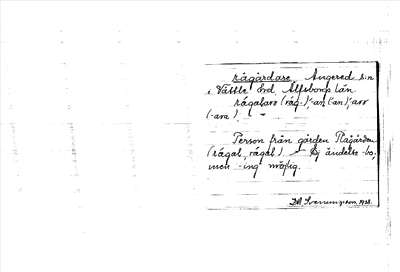 rågårdare. Angered s:n
i Vättle hd. Älfsborgs län
rågalare (råg-); -an (an); -arr
(-ara).
Person från gården Rågården
(rågal, rågal). – Ej ändelse -bo,
men -ing möjlig.
1938.